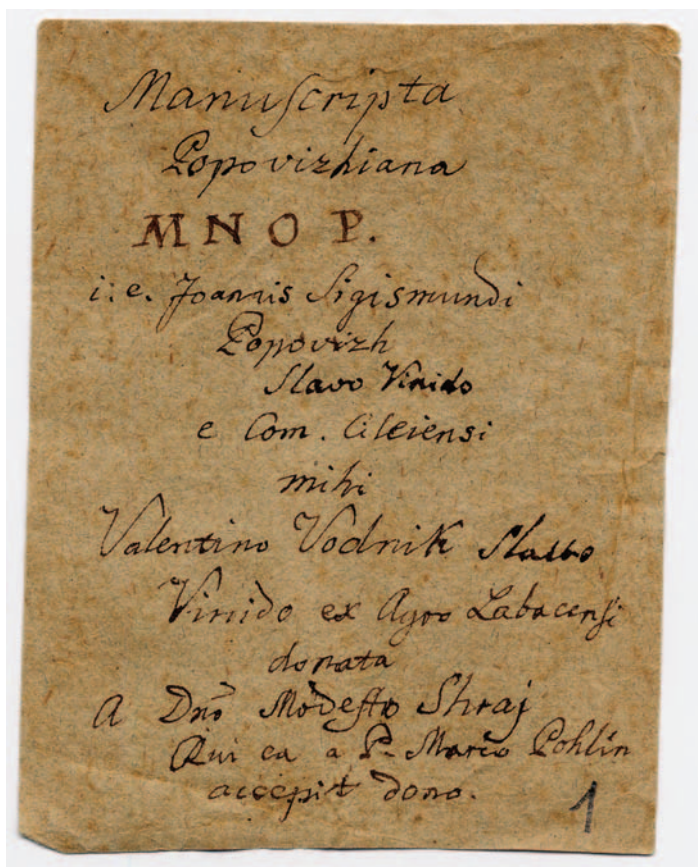 Manuſcripta
Popovizhiana
M N O P.
i: e. Joannis Sigismundi
Popovizh
Slavo Vinido
e Com. Celeiensi
mihi
Valentino Vodnik Slavo
Vinido ex Agro Labacenſi
donata
A Dnō Modeſto Shraj
Qui ea a P. Marco Pohlin
accepit dono.
1